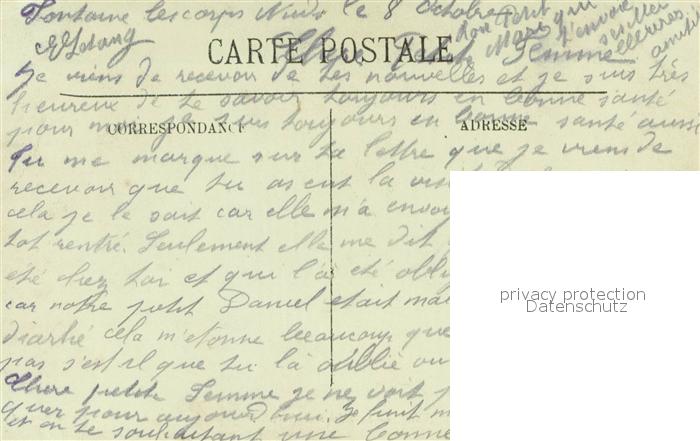 Fontaine les corps Nuds le 8 Octobre
ton petit
Mari qui
t'envoie
ses meilleures
amitiés
CARTE POSTALE
Chère Petite Femme
Je viens de recevoir de tes nouvelles et je suis très
heureux de te savoir toujours en bonne santé
pour moi je suis toujours en bonne santé aussi
CORRESPONDANCE
ADRESSE
Tu me marque sur ta lettre que je viens de
recevoir que tu as eut la
cela je le sait car elle m'a envoy
tot rentré. Seulement elle me dit
été chez toi et qui l'a été obli
car notre petit Daniel était ma
diarhé cela m'etonne beaucoup que
pas s'est il que tu la oublié ou
Chere petite Femme je ne voit
quer pour aujourd'hui. Je finit
et en te souhaitant une bonne
privacy protection
Datenschutz